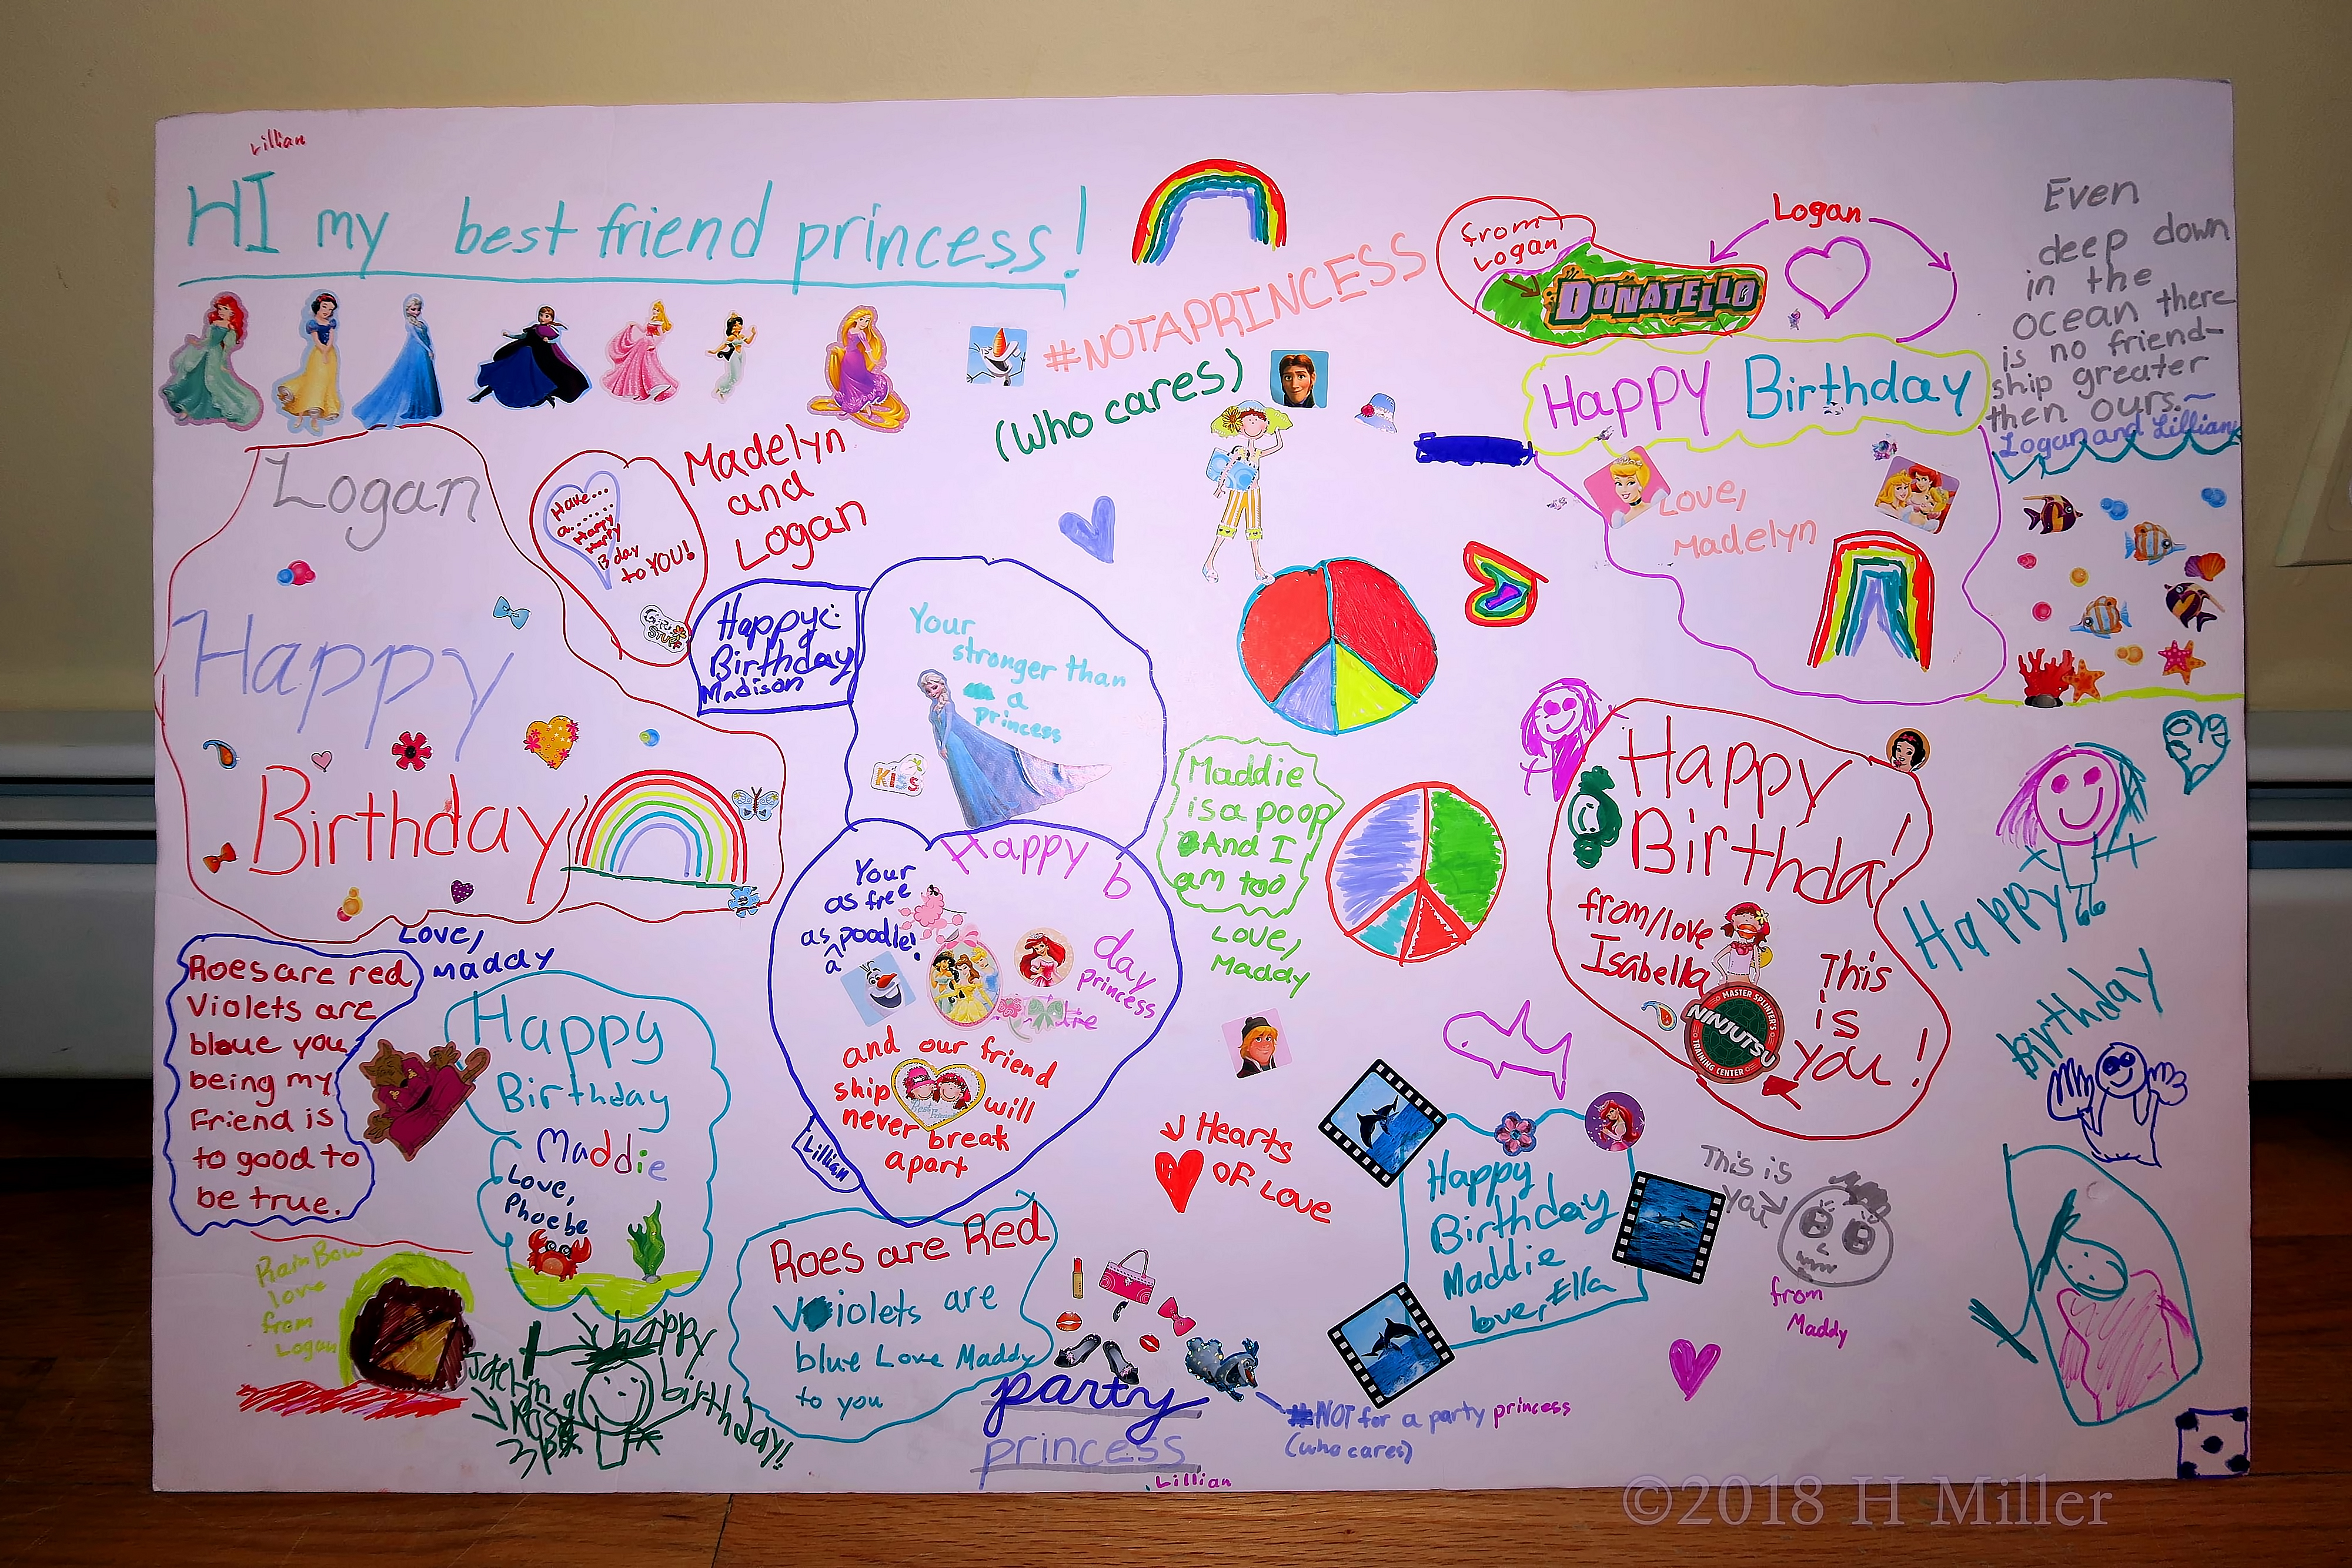 Lillian
HI my best friend princess!
#NOTAPRINCESS
(Who cares)
from
Logan
DONATELLO
Logan
Even
deep down
in the
ocean there
is no friend-
ship greater
then ours.~
Logan and Lillian
Happy Birthday
Love,
Madelyn
Logan
Happy
Birthday
Have...
a.......
Happy
Happy
B day
to YOU!
Madelyn
and
Logan
Happy
Birthday
Madison
Your
stronger than
a
princess
KISS
Happy b
day
princess
Your
as free
as a poodle!
and our friend
ship will
never break
apart
Lillian
Maddie
is a poop
And I
am too
Love,
Maddy
Happy
Birthda!
from/love
Isabella
This
is
you!
MASTER SPLINTER'S
NINJUTSU
TRAINING CENTER
Happy
birthday
Love,
Maddy
Roes are red
Violets are
bloue you
being my
Friend is
to good to
be true.
Happy
Birthday
Maddie
Love,
Phoebe
RainBow
love
from
Logan
happy
birthday!
Roes are Red
Voiolets are
blue Love Maddy
to you
Hearts
OF Love
Happy
Birthday
Maddie
love, Ella
This is
you
from
Maddy
party
princess
Lillian
#NOT for a party princess
(who cares)
©2018 H Miller